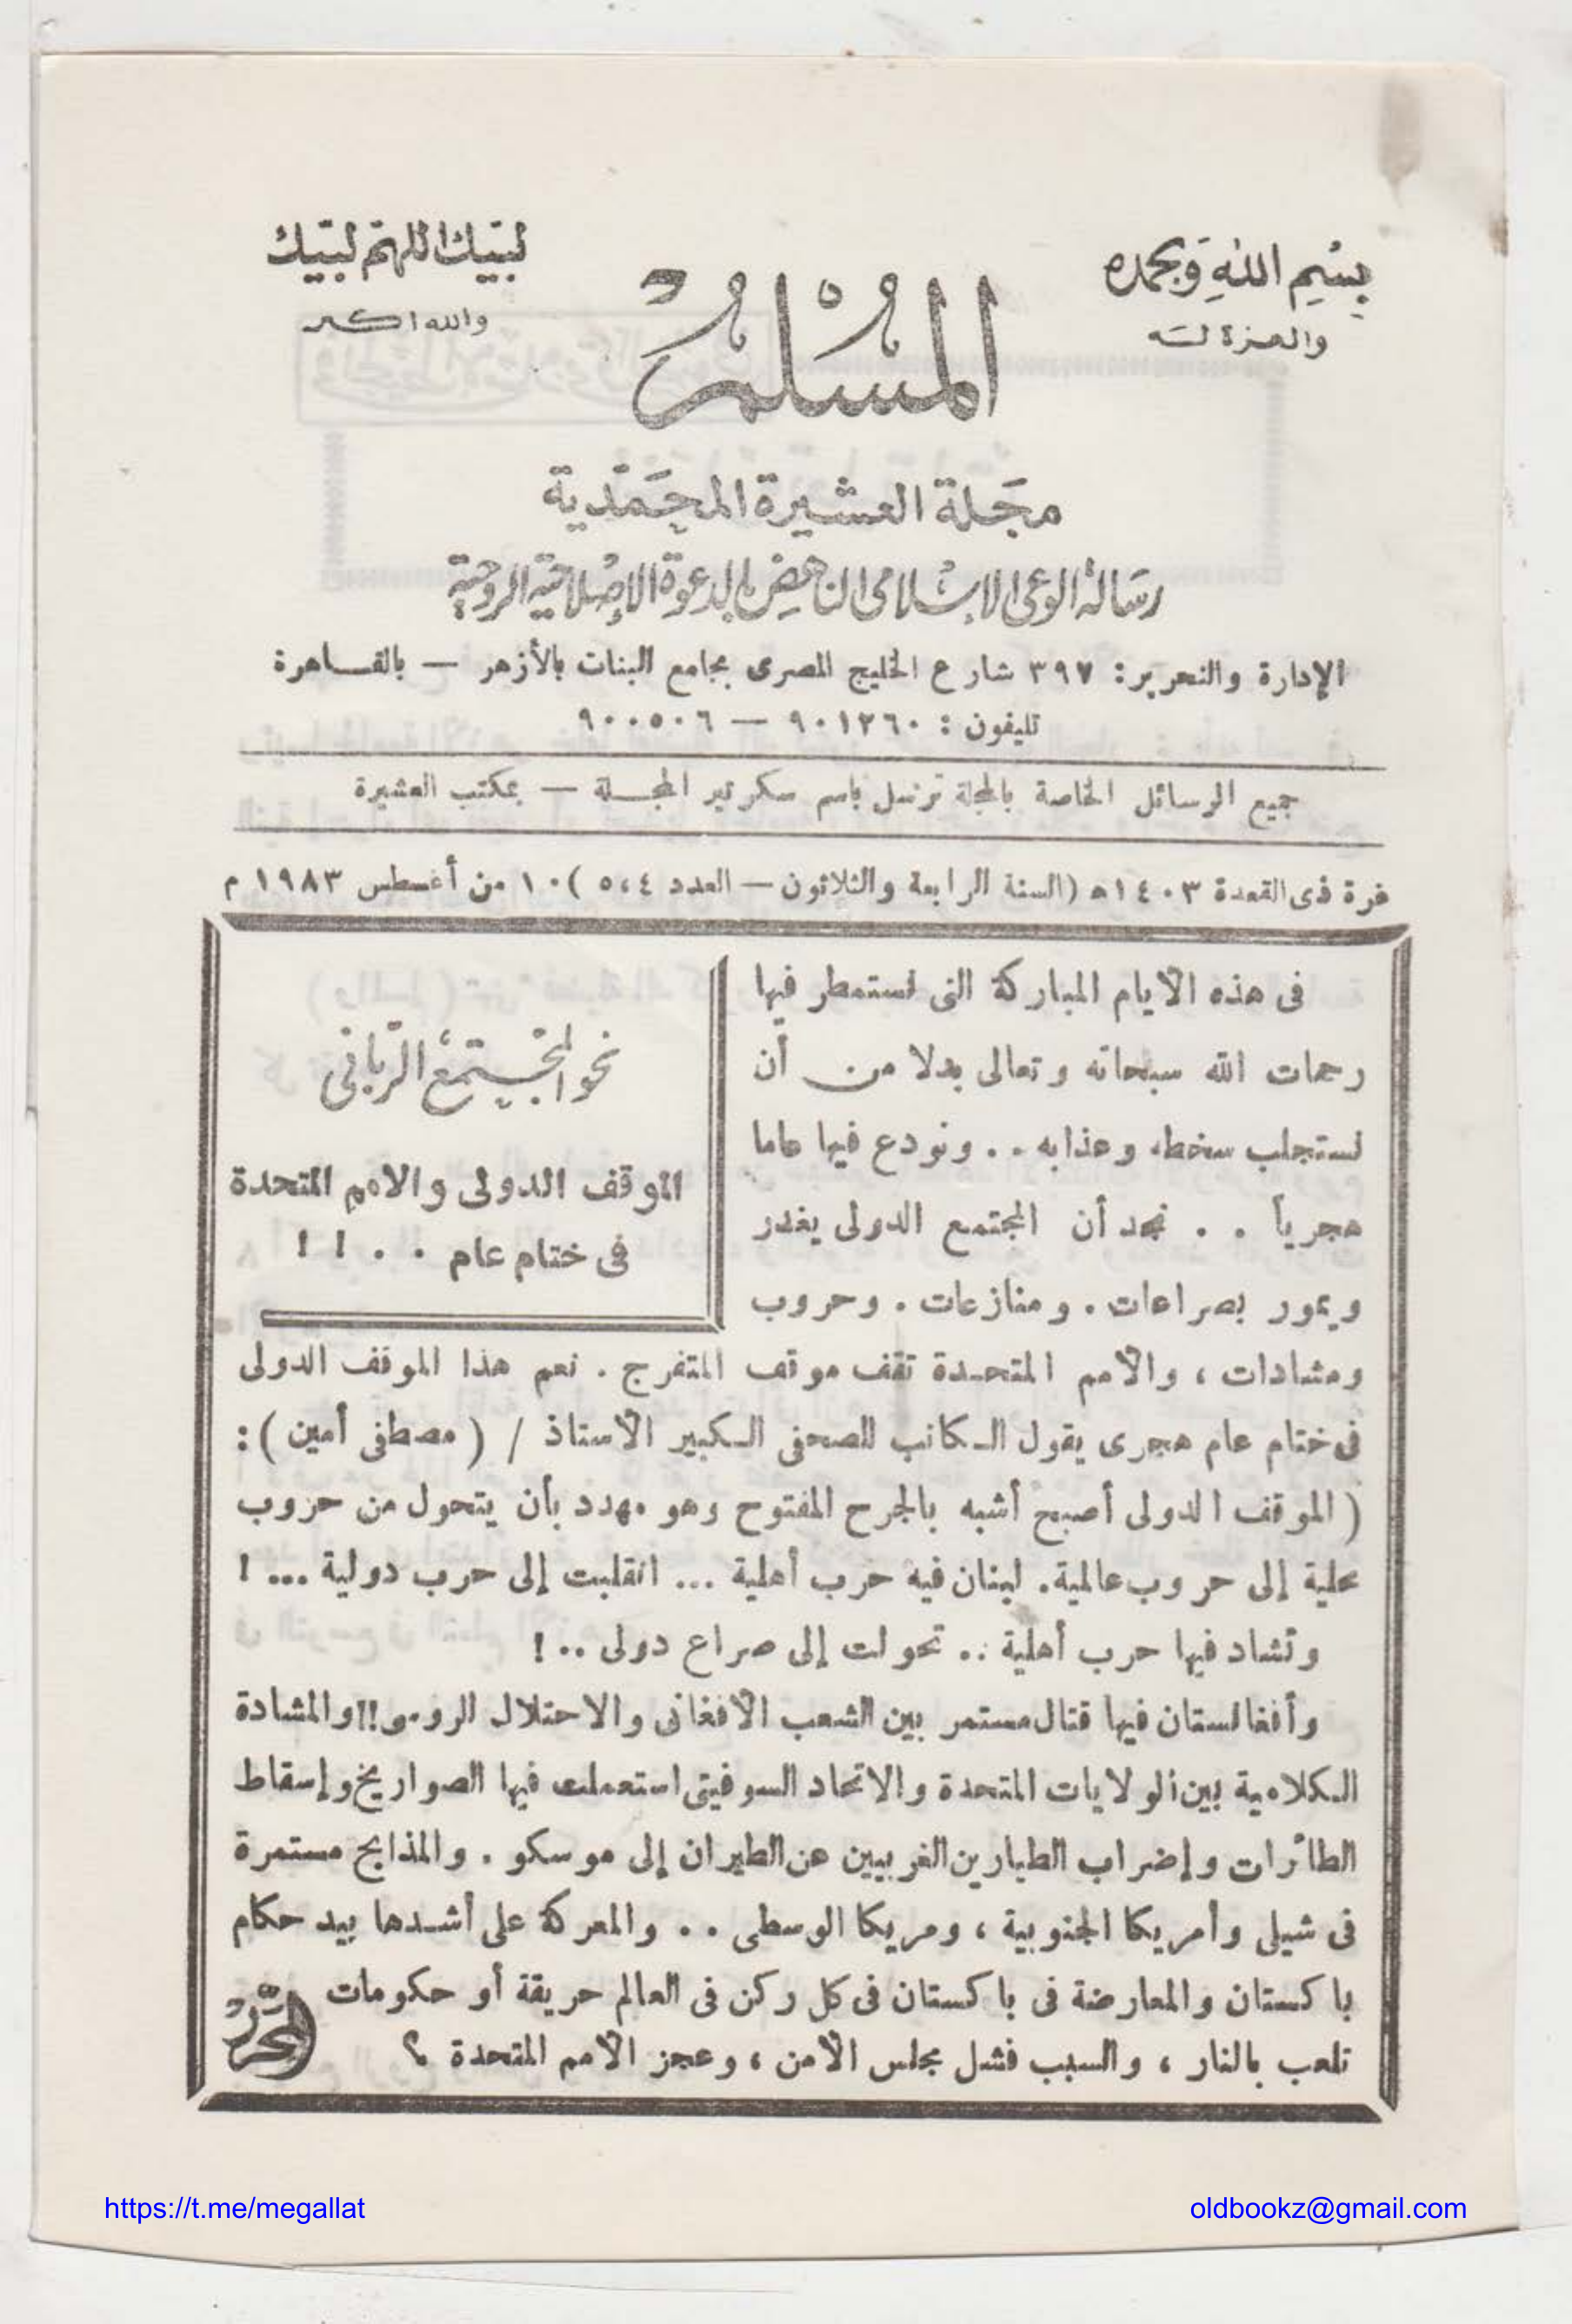 بسم الله وبحمده
والعزة لله
لبيك اللهم لبيك
والله اكبر
المسلم
مجلة العشيرة المحمدية
رسالة الوعى الإسلامى الناهض بالدعوة الإصلاحية الروحية
الإدارة والتحرير: ٣٩٧ شارع الخليج المصرى بجامع البنات بالأزهر — بالقــاهرة
تليفون : ٩٠١٢٦٠ — ٩٠٠٥٠٦
جميع الرسائل الخاصة بالمجلة ترسل باسم سكرتير المجــلة — بمكتب العشيرة
غرة ذى القعدة ١٤٠٣ه (السنة الرابعة والثلاثون — العدد ٥،٤ ) ١٠ من أغسطس ١٩٨٣ م
نحو المجتمع الرّبانى
الموقف الدولى والامم المتحدة
فى ختام عام . . ! !
فى هذه الأيام المباركة التى نستمطر فيها
رحمات الله سبحانه وتعالى بدلا من أن
نستجلب سخطه وعذابه . . ونودع فيها عاما
هجرياً . . نجد أن المجتمع الدولى يغدر
ويمور بصراعات . ومنازعات . وحروب
ومشادات ، والأمم المتحــدة تقف موقف المتفرج . نعم هذا الموقف الدولى
فى ختام عام هجرى يقول الـكاتب الصحفى الـكبير الأستاذ / ( مصطفى أمين ) :
( الموقف الدولى أصبح أشبه بالجرح المفتوح وهو مهدد بأن يتحول من حروب
محلية إلى حروب عالمية. لبنان فيه حرب أهلية ... انقلبت إلى حرب دولية ... !
وتشاد فيها حرب أهلية .. تحولت إلى صراع دولى .. !
وأفغانستان فيها قتال مستمر بين الشعب الأفغانى والاحتلال الروسى!! والمشادة
الـكلامية بين الولايات المتحدة والاتحاد السوفيتى استعملت فيها الصواريخ وإسقاط
الطائرات وإضراب الطيارين الغربيين عن الطيران إلى موسكو . والمذابح مستمرة
فى شيلى وأمريكا الجنوبية ، ومريكا الوسطى . . والمعركة على أشــدها بيد حكام
باكستان والمعارضة فى باكستان فى كل ركن فى العالم حريقة أو حكومات
تلعب بالنار ، والسبب فشل مجلس الأمن ، وعجز الأمم المتحدة ؟
المحرر
https://t.me/megallat
oldbookz@gmail.com